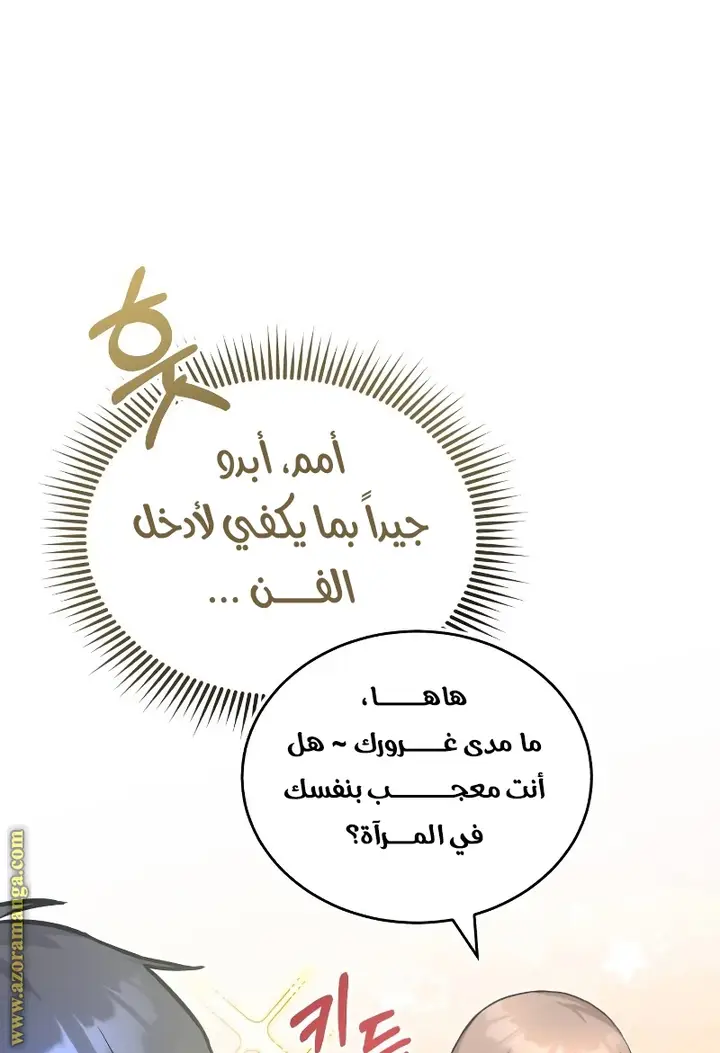 훗
أمم، أبدو
جيداً بما يكفي لأدخل
الفـــن ...
هاهـــا،
ما مدى غـــرورك ~ هل
أنت معجـــب بنفسك
في المـــرآة؟
www.azoramanga.com